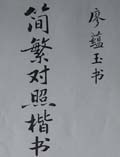 廖蕴玉书
简繁对照楷书